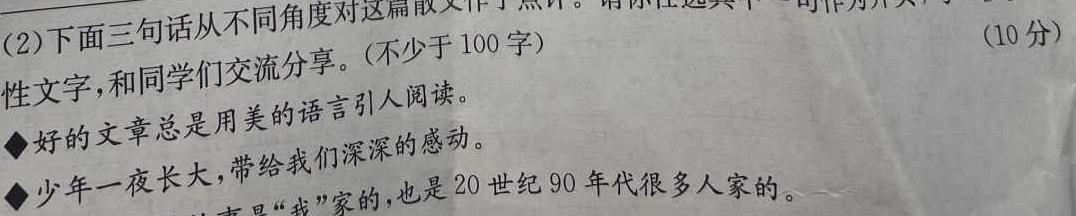 (2)下面三句话从不同角度对这篇散文作了点评。请你任选其中一句作为开头,
性文字,和同学们交流分享。(不少于 100 字) (10 分)
◆好的文章总是用美的语言引人阅读。
◆少年一夜长大,带给我们深深的感动。
是“我”家的,也是 20 世纪 90 年代很多人家的。